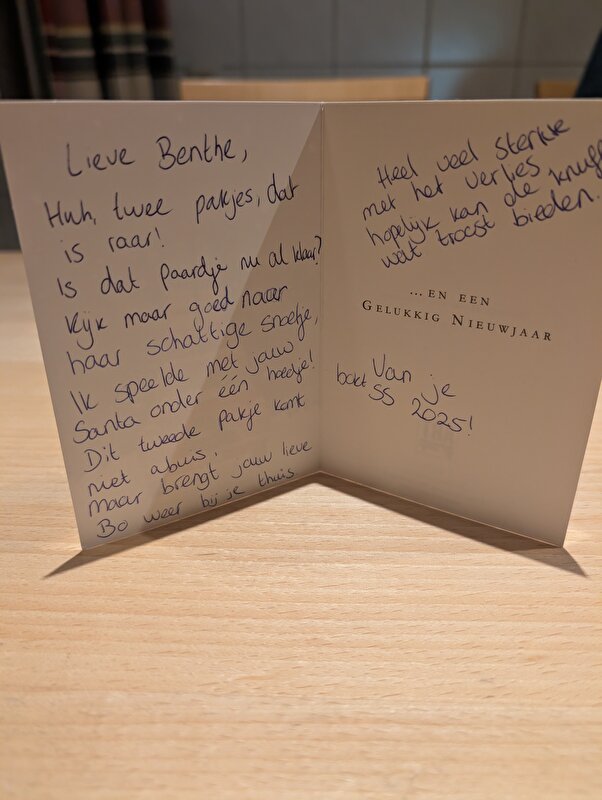 Lieve Benthe,
Huh, twee pakjes, dat
is raar!
Is dat paardje nu al klaar?
Kijk maar goed naar
haar schattige snoetje,
Ik speelde met jouw
Santa onder één hoedje!
Dit tweede pakje komt
niet abuis,
Maar brengt jouw lieve
Bo weer bij je thuis
Heel veel sterkte
met het verlies,
hopelijk kan de knuffel
wat troost bieden.
...EN EEN
GELUKKIG NIEUWJAAR
Van je
bokt SS 2025!